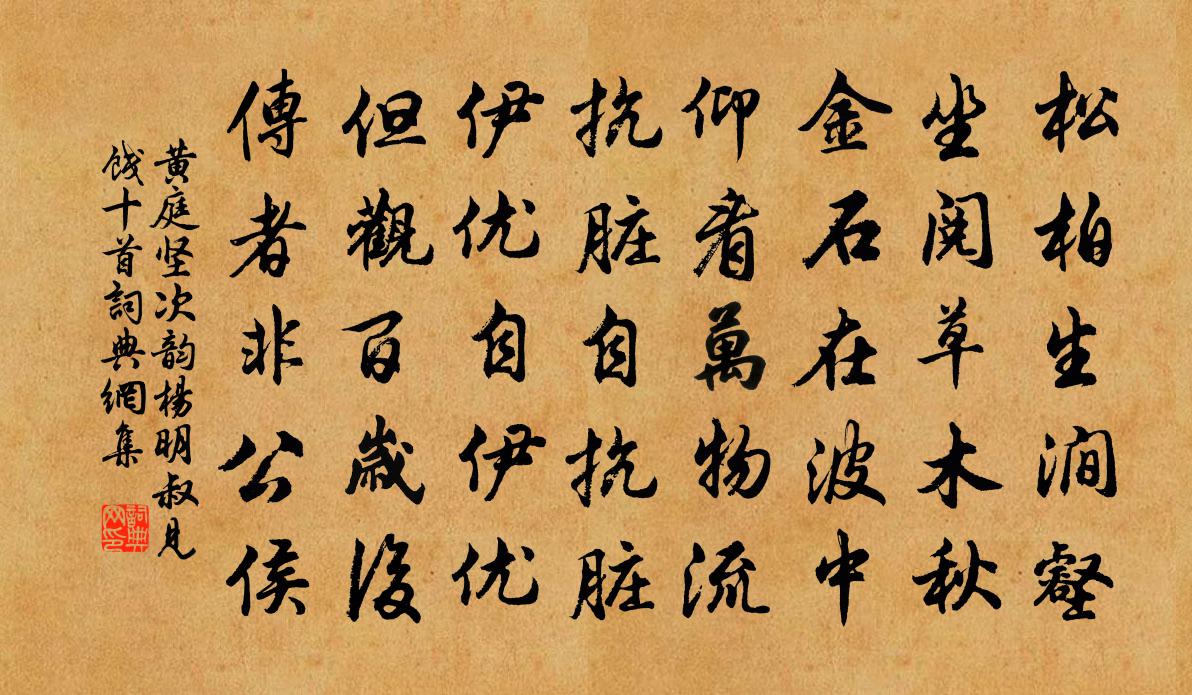 松柏生澗壑
坐閱草木秋
金石在波中
仰看萬物流
抗脏自抗脏
伊优自伊优
但觀百歲後
傳者非公侯
黄庭坚次韵楊明叔見
餞十首詞典網集
詞典
网印